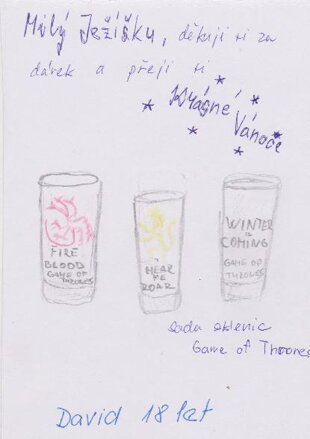 Milý Ježíšku, děkuji ti za
dárek a přeji ti
Krásné
Vánoce
FIRE
BLOOD
GAME OF
THRONES
HEAR
ME
ROAR
WINTER
IS
COMING
GAME OF
THRONES
sada sklenic
Game of Thrones
David 18 let